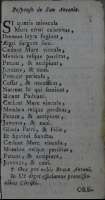 Responso de San Antonio.
SI quæris miracula
Mors error calamitas,
Dæmon lepra fugiunt,
Ægri surgunt sani.
Cedunt Mare vincula,
Membra resque perditas
Petunt, & accipiunt,
Juvenes, & cani.
Pereunt pericula,
Cessat, & necessitas,
Narrent hi qui sentiunt
Dicant Paduani.
Cedunt Mare vincula,
Membra resque perditas,
Petunt, & accipiunt,
Juvenes, & cani.
Gloria Patri, & Filio,
& Spiritui Sancto
Cedunt Mare vincula,
Membra resque perditas,
Petunt, & accipiunt,
Juvenes, & cani.
℣. Ora pro nobis Beate Antoni.
℟. Ut digni efficiamur promissio-
nibus Christi.